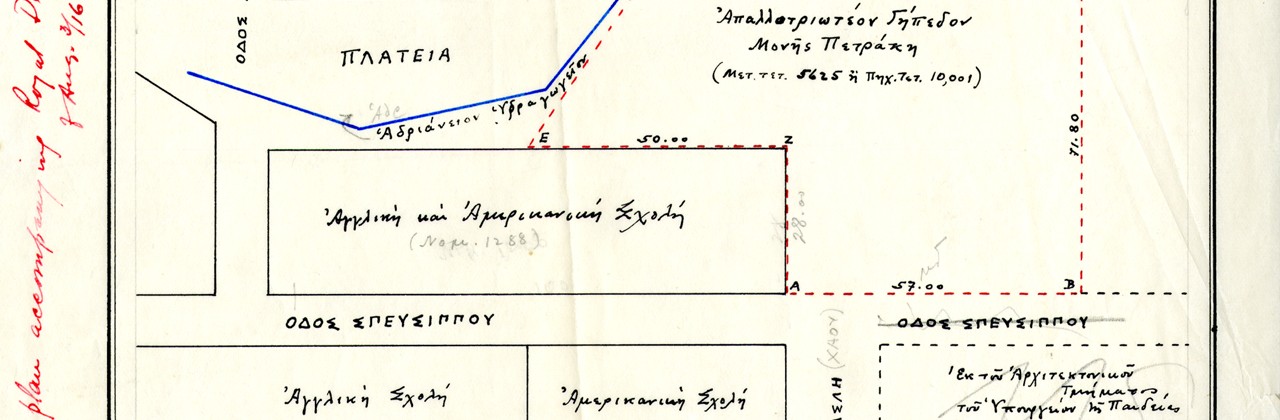 plan accompanying Royal
7 Aug.
ΟΔΟΣ
ΠΛΑΤΕΙΑ
Ἀπαλλοτριωτέον Γήπεδον
Μονῆς Πετράκη
(Μετ. τετ. 5625 ἢ Πηχ. Τετ. 10,001)
Ἀδρ
Ἀδριάνειον Ὑδραγωγεῖον
E
50.00
Z
71.80
Ἀγγλικὴ καὶ Ἀμερικανικὴ Σχολή
(Νομ. 1288)
28.00
A
57.00
B
ΟΔΟΣ ΣΠΕΥΣΙΠΠΟΥ
ΟΔΟΣ ΣΠΕΥΣΙΠΠΟΥ
(ΧΑΟΥ)
ΣΕΛΗ
Ἀγγλικὴ Σχολή
Ἀμερικανικὴ Σχολή
Ἐκ τοῦ Ἀρχιτεκτονικοῦ
Τμήματος
τοῦ Ὑπουργείου τῆς Παιδείας